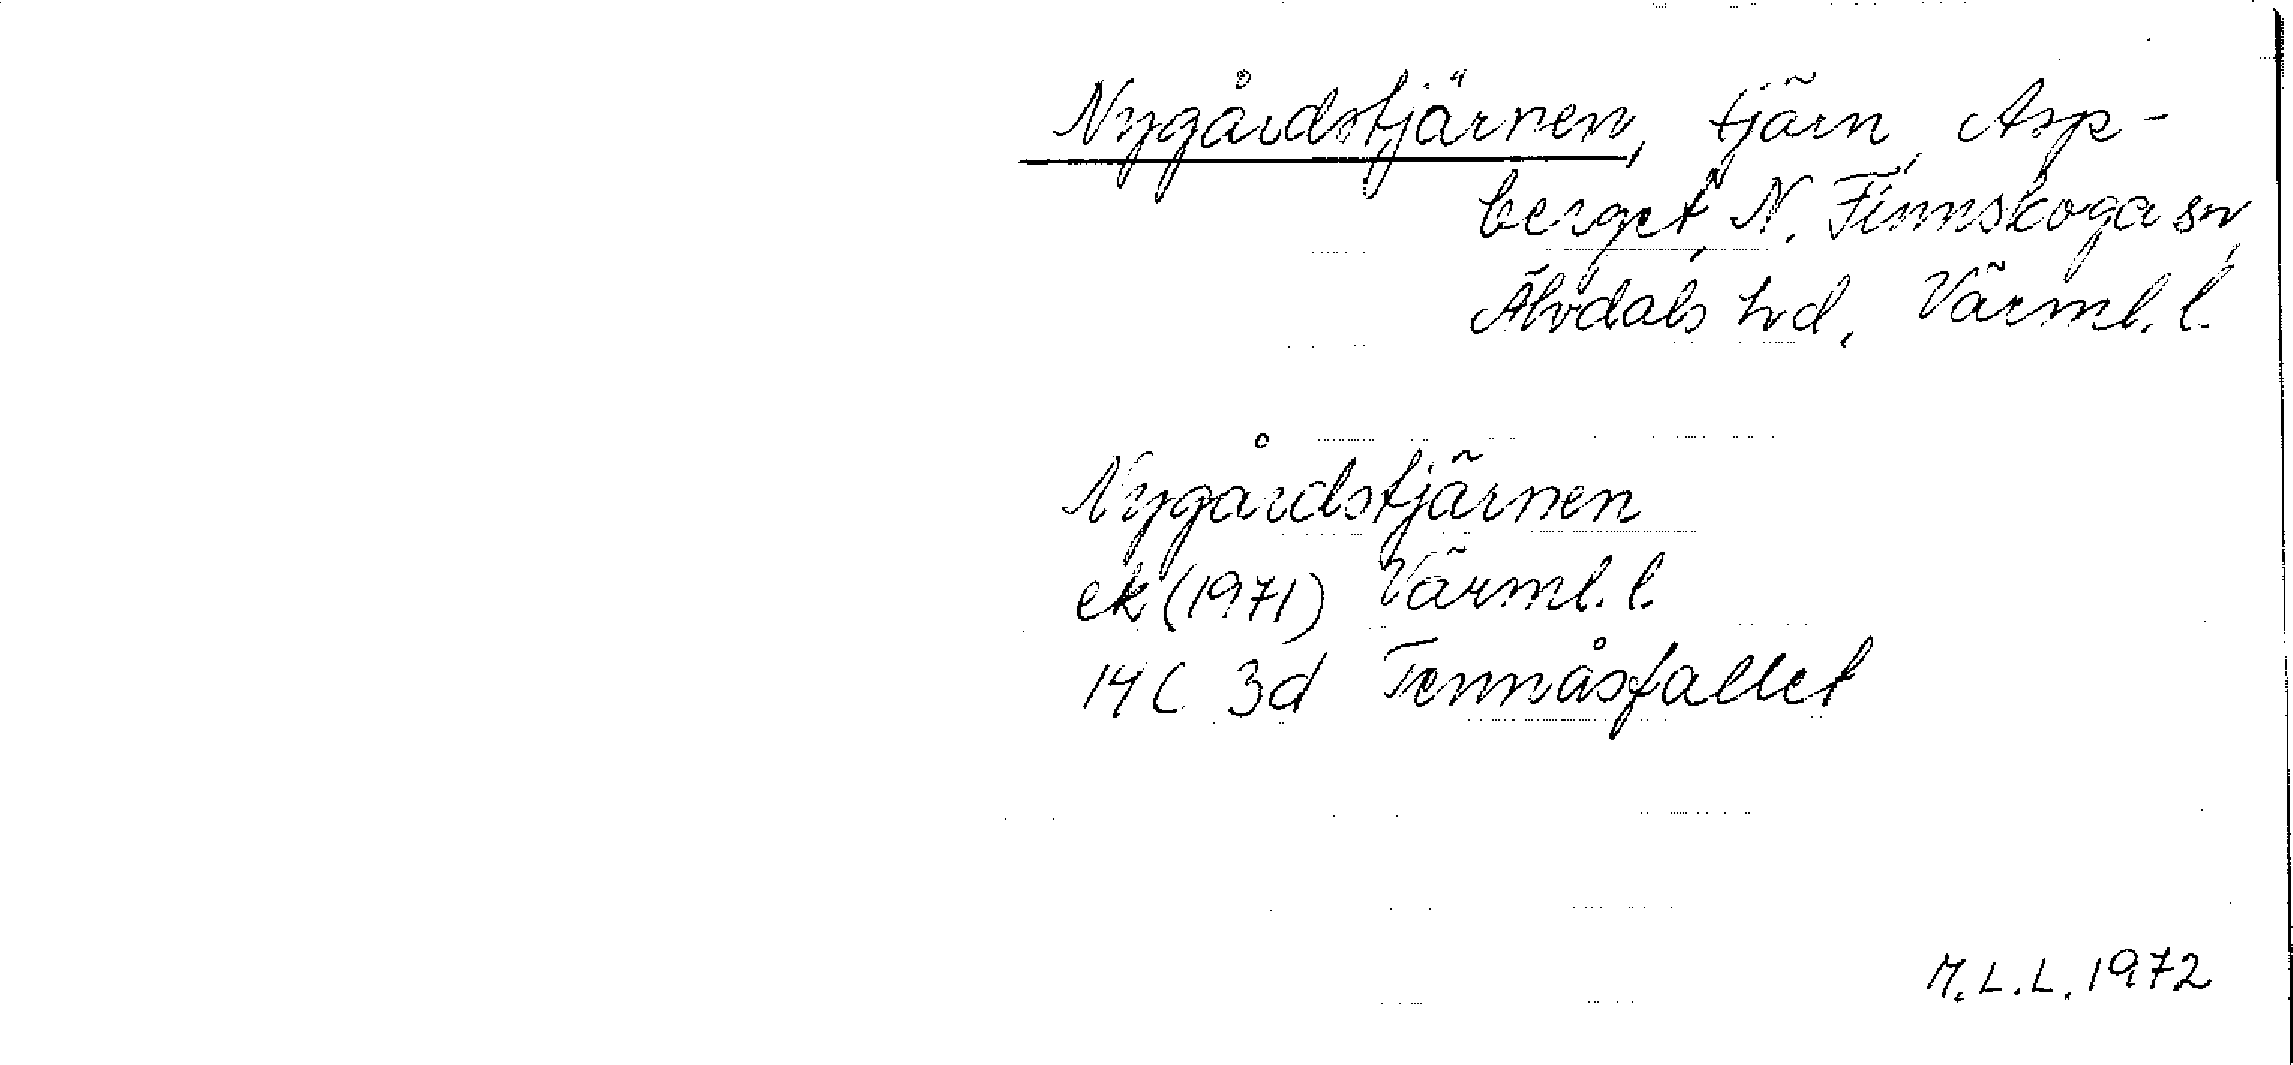 Nygårdstjärnen, tjärn, Asp-
berget, N. Finnskoga sn,
Älvdals hd, Värml. l.
Nygårdstjärnen
ek (1971) Värml. l.
14C 3d Tennåsfallet
M.L.L. 1972